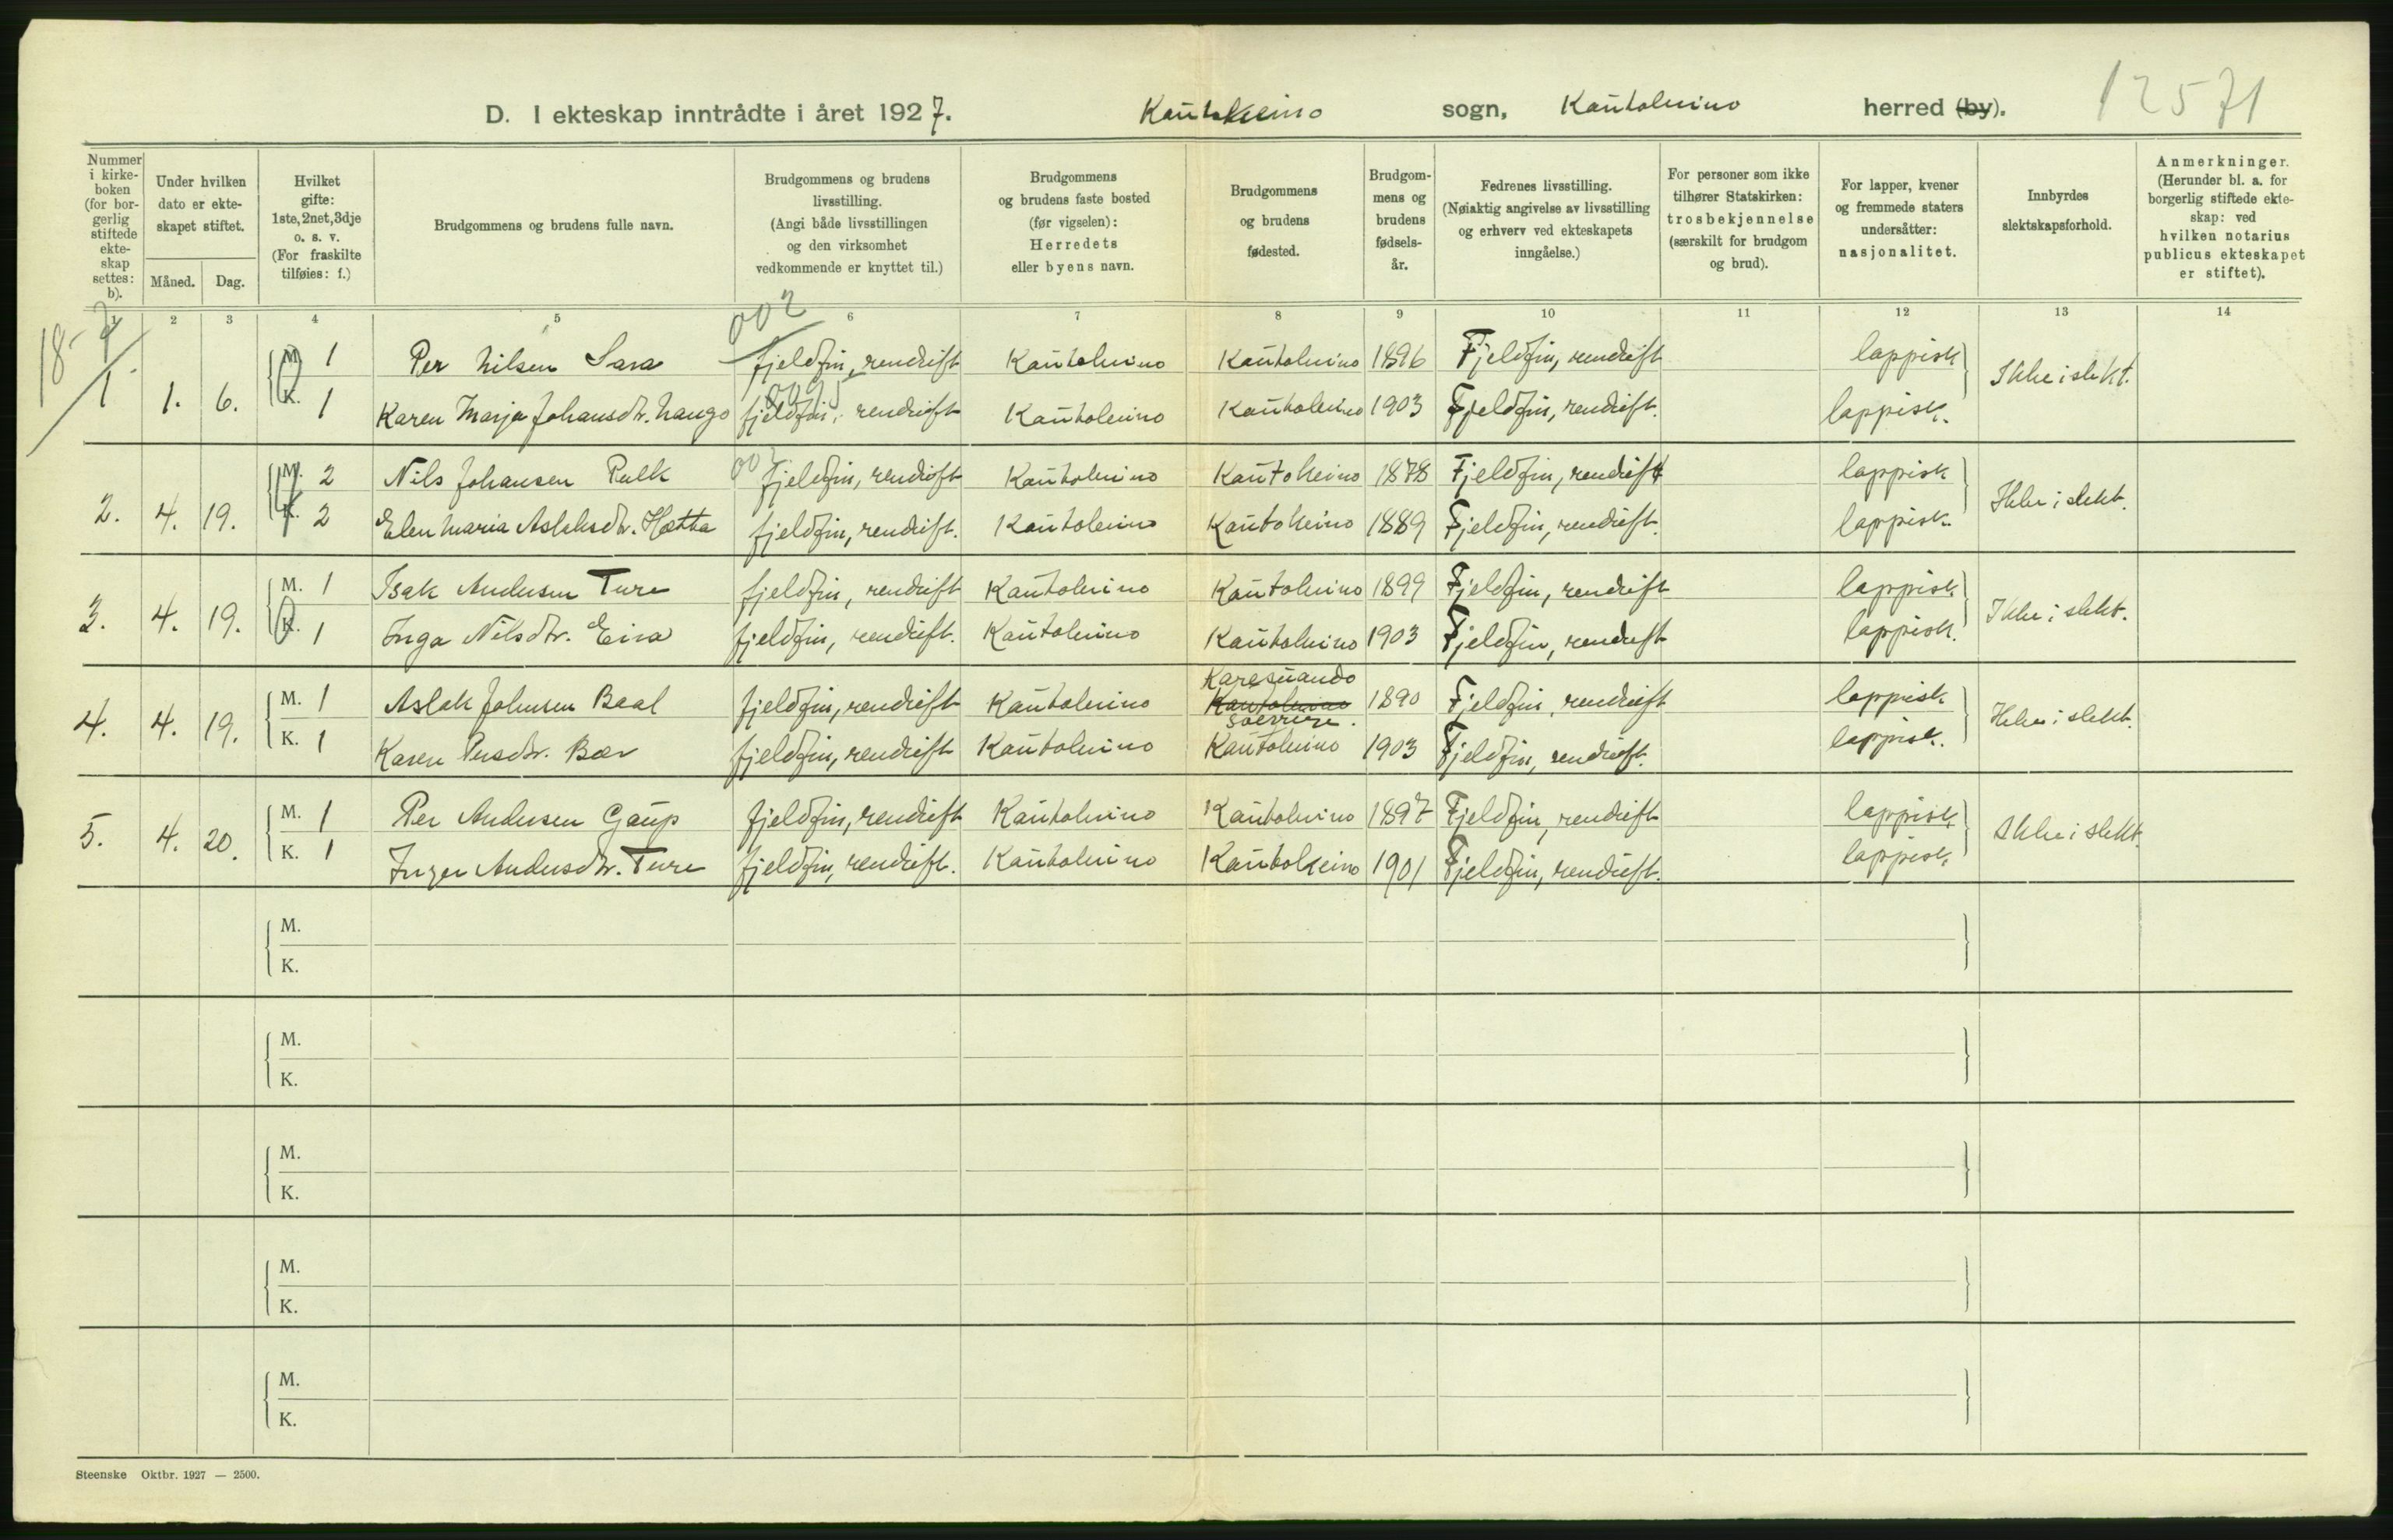 D. I ekteskap inntrådte i året 1927. Kautokeino sogn, Kautokeino herred (by).
12571
Nummer i kirke-boken (for bor-gerlig stiftede ekte-skap settes: b).
Under hvilken dato er ekte-skapet stiftet.
Måned. Dag.
Hvilket gifte: 1ste, 2net, 3dje o. s. v. (For fraskilte tilføies: f.)
Brudgommens og brudens fulle navn.
Brudgommens og brudens livsstilling. (Angi både livsstillingen og den virksomhet vedkommende er knyttet til.)
Brudgommens og brudens faste bosted (før vigselen): Herredets eller byens navn.
Brudgommens og brudens fødested.
Brudgom-mens og brudens fødsels-år.
Fedrenes livsstilling. (Nøiaktig angivelse av livsstilling og erhverv ved ekteskapets inngåelse.)
For personer som ikke tilhører Statskirken: trosbekjennelse (særskilt for brudgom og brud).
For lapper, kvener og fremmede staters undersåtter: nasjonalitet.
Innbyrdes slektskapsforhold.
Anmerkninger. (Herunder bl. a. for borgerlig stiftede ekte-skap: ved hvilken notarius publicus ekteskapet er stiftet).
1 2 3 4 5 6 7 8 9 10 11 12 13 14
002
M. 1 Per Nilsen Sara fjeldfin, rendrift Kautokeino Kautokeino 1896 Fjeldfin, rendrift lappisk
1 1. 6. Ikke i slekt.
K. 1 Karen Marja Johansdtr. Logo fjeldfin, rendrift Kautokeino Kautokeino 1903 Fjeldfin, rendrift. lappisk.
002
M. 2 Nils Johansen Pulk fjeldfin, rendrift Kautokeino Kautokeino 1878 Fjeldfin, rendrift lappisk
2. 4. 19. Ikke i slekt.
K. 2 Elen Maria Aslaksdtr. Hætta fjeldfin, rendrift. Kautokeino Kautokeino 1889 Fjeldfin, rendrift. lappisk.
M. 1 Isak Andersen Ture fjeldfin, rendrift Kautokeino Kautokeino 1899 Fjeldfin, rendrift lappisk
3. 4. 19. Ikke i slekt.
K. 1 Inga Nilsdtr. Eira fjeldfin, rendrift. Kautokeino Kautokeino 1903 Fjeldfin, rendrift lappisk.
Karesuando
M. 1 Aslak Johnsen Baal fjeldfin, rendrift Kautokeino Kautokeino 1890 Fjeldfin, rendrift lappisk
4. 4. 19. Ikke i slekt.
K. 1 Karen Persdtr. Bær fjeldfin, rendrift Kautokeino Kautokeino 1903 Fjeldfin, rendrift. lappisk.
M. 1 Per Andersen Gaup fjeldfin, rendrift Kautokeino Kautokeino 1897 Fjeldfin, rendrift lappisk
5. 4. 20. Ikke i slekt.
K. 1 Inger Andersdtr. Ture fjeldfin, rendrift. Kautokeino Kautokeino 1901 Fjeldfin, rendrift. lappisk.
M.
K.
M.
K.
M.
K.
M.
K.
M.
K.
Steenske Oktbr. 1927 — 2500.